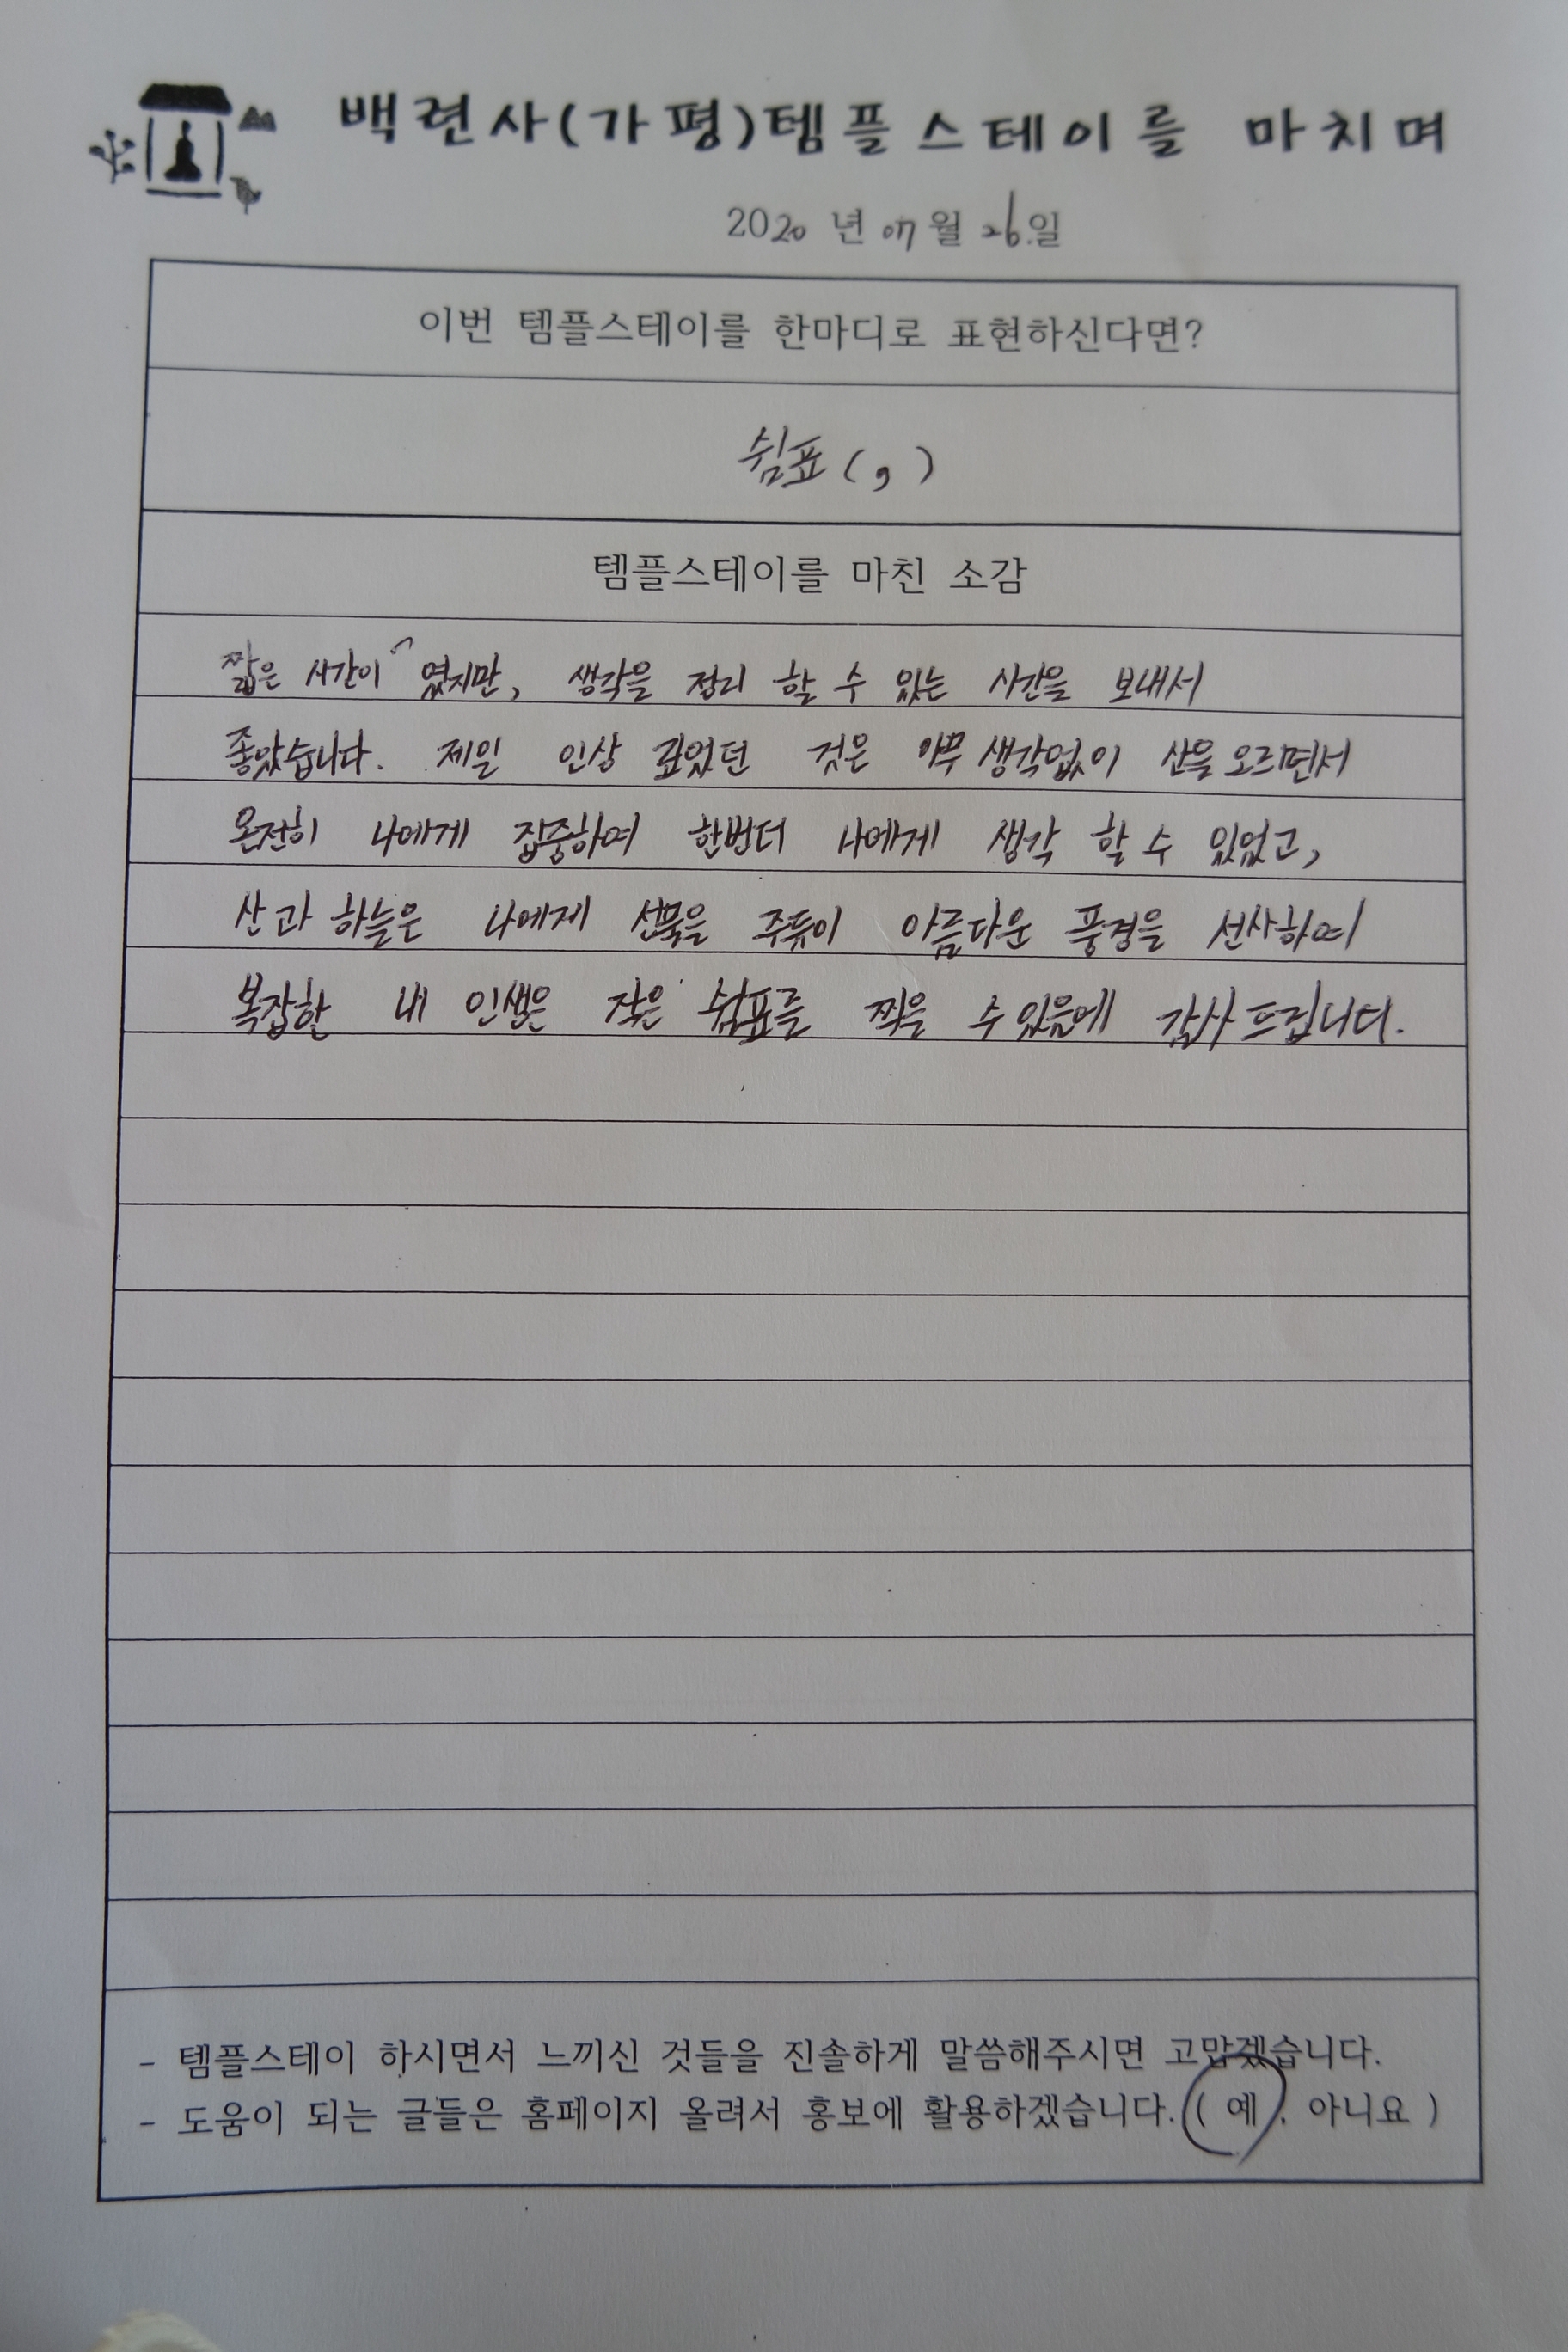 백련사(가평)템플스테이를 마치며
2020 년 07 월 26.일
이번 템플스테이를 한마디로 표현하신다면?
쉼표(,)
템플스테이를 마친 소감
짧은 시간이 였지만, 생각을 정리 할 수 있는 시간을 보내서
좋았습니다. 제일 인상 깊었던 것은 아무 생각없이 산을 오르면서
온전히 나에게 집중하여 한번더 나에게 생각 할 수 있었고,
산과 하늘은 나에게 선물을 주듯이 아름다운 풍경을 선사하여
복잡한 내 인생은 작은 쉼표를 찍을 수 있음에 감사 드립니다.
- 템플스테이 하시면서 느끼신 것들을 진솔하게 말씀해주시면 고맙겠습니다.
- 도움이 되는 글들은 홈페이지 올려서 홍보에 활용하겠습니다. ( 예 , 아니요 )